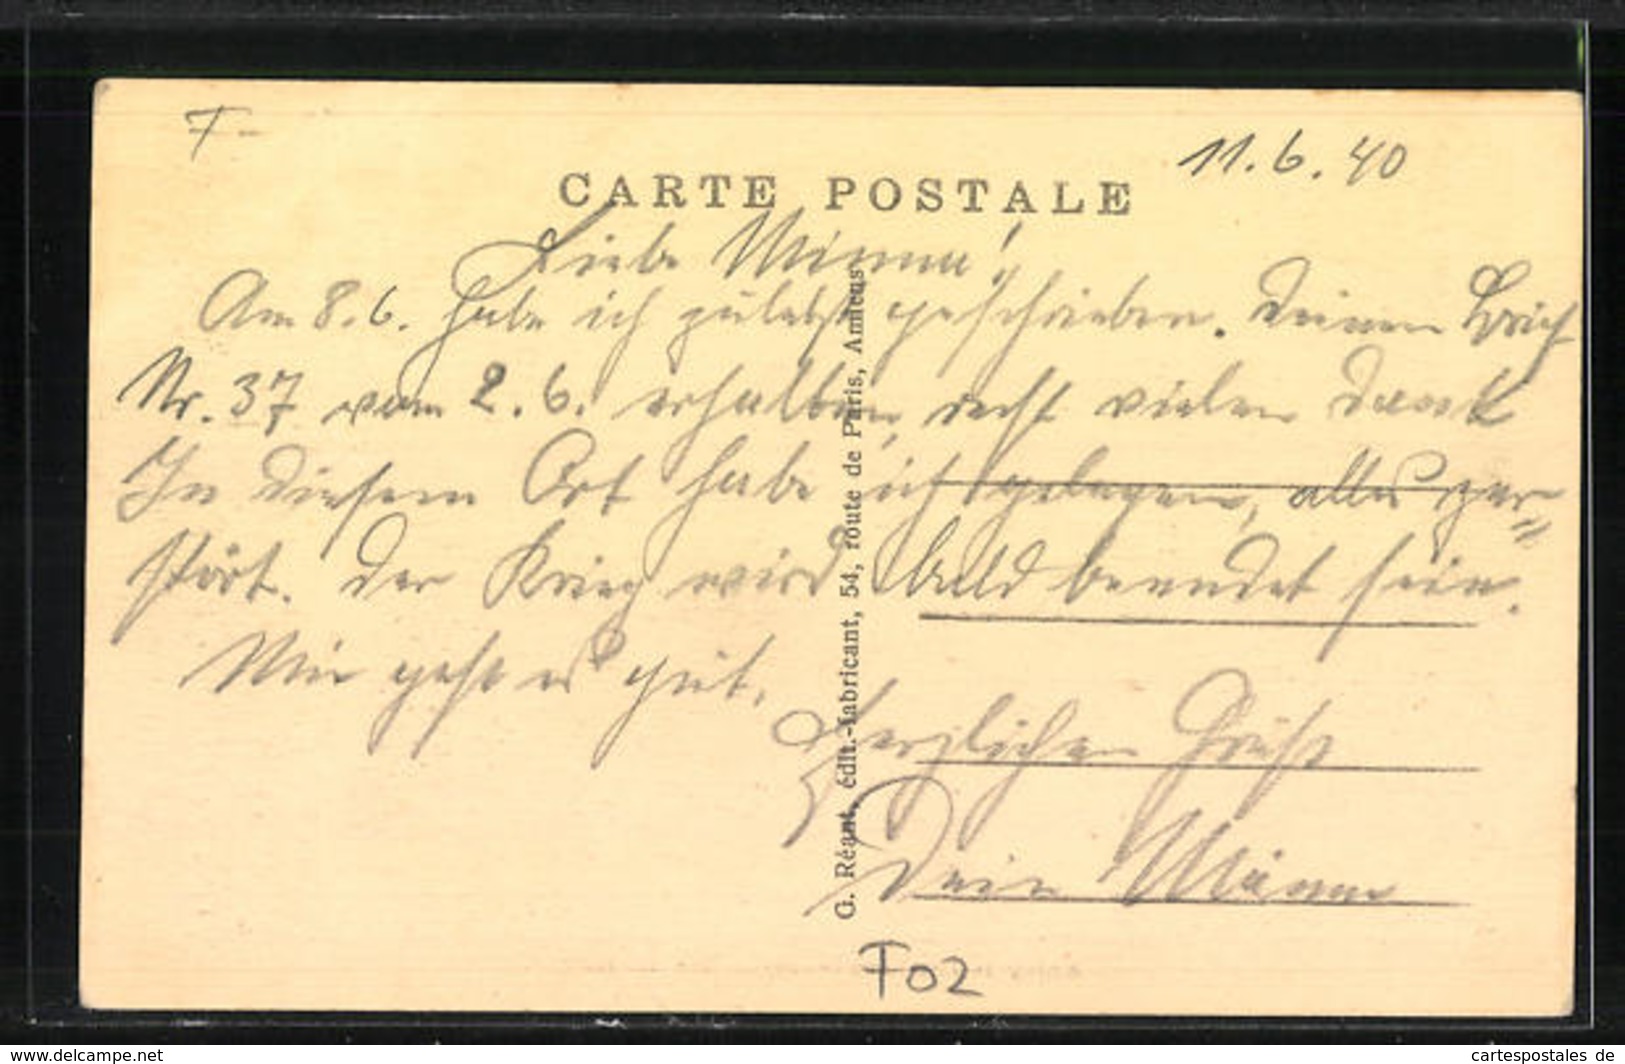 F-
11.6.40
CARTE POSTALE
Liebe Minna!
Am 8.6. habe ich zuletzt geschrieben. Deinen Brief
Nr. 37 vom 2.6. erhalten, recht vielen Dank
In diesem Ort habe ich gelegen, alles zer=
stört. Der Krieg wird bald beendet sein.
Mir geht es gut.
Herzlichen Grüße
Dein Männe
G. Réant, édit.-fabricant, 54, route de Paris, Amiens
F02
www.delcampe.net
cartespostales de